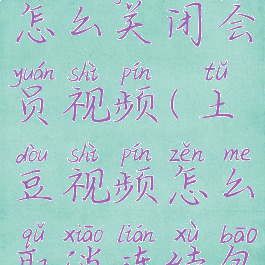 怎么关闭会
yuán shì pín tǔ
员视频(土
dòu shì pín zěn me
豆视频怎么
qǔ xiāo lián xù bāo
取消连续包